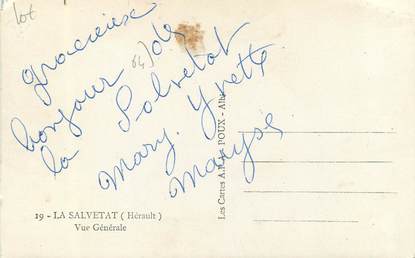 lot
gracieux
bonjour de
la Salvetat
Mary. Yvette
Maryse
19 - LA SALVETAT ( Hérault )
Vue Générale
Les Cartes A. P. A. POUX - Albi